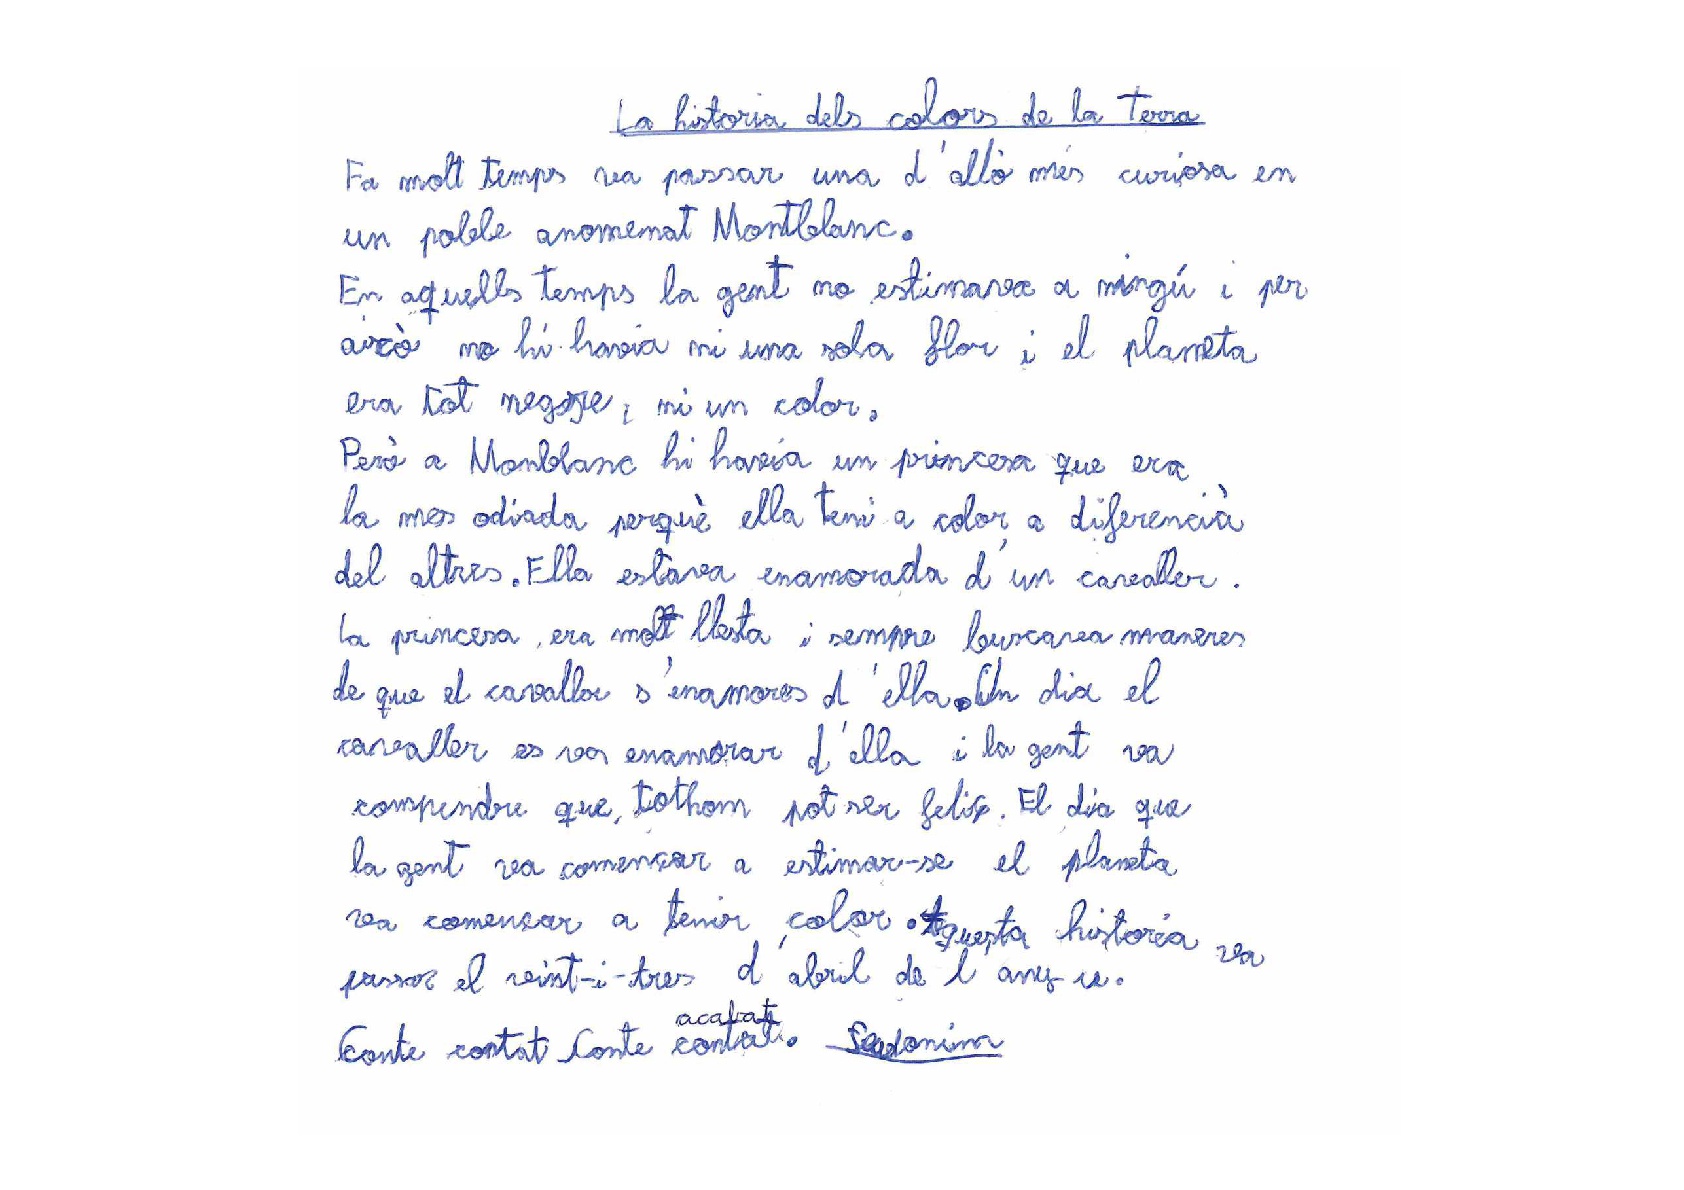 La historia dels colors de la Terra
Fa molt temps va passar una d'allò més curiosa en
un poble anomenat Montblanc.
En aquells temps la gent no estimava a ningú i per
això no hi havia ni una sola flor i el planeta
era tot negre, ni un color.
Però a Monblanc hi havia un princesa que era
la mes odiada perquè ella teni a color, a diferencià
del altres. Ella estava enamorada d'un cavaller.
La princesa era molt llesta i sempre buscava maneres
de que el cavaller s'enamores d'ella. Un dia el
cavaller es va enamorar d'ella i la gent va
compendre que, tothom pot ser feliç. El dia que
la gent va començar a estimar-se el planeta
va comensar a tenir color. Aquesta història va
passar el veint-i-tres d'abril de l'any-u.
acabat
Conte contat Conte contat. Seudonim